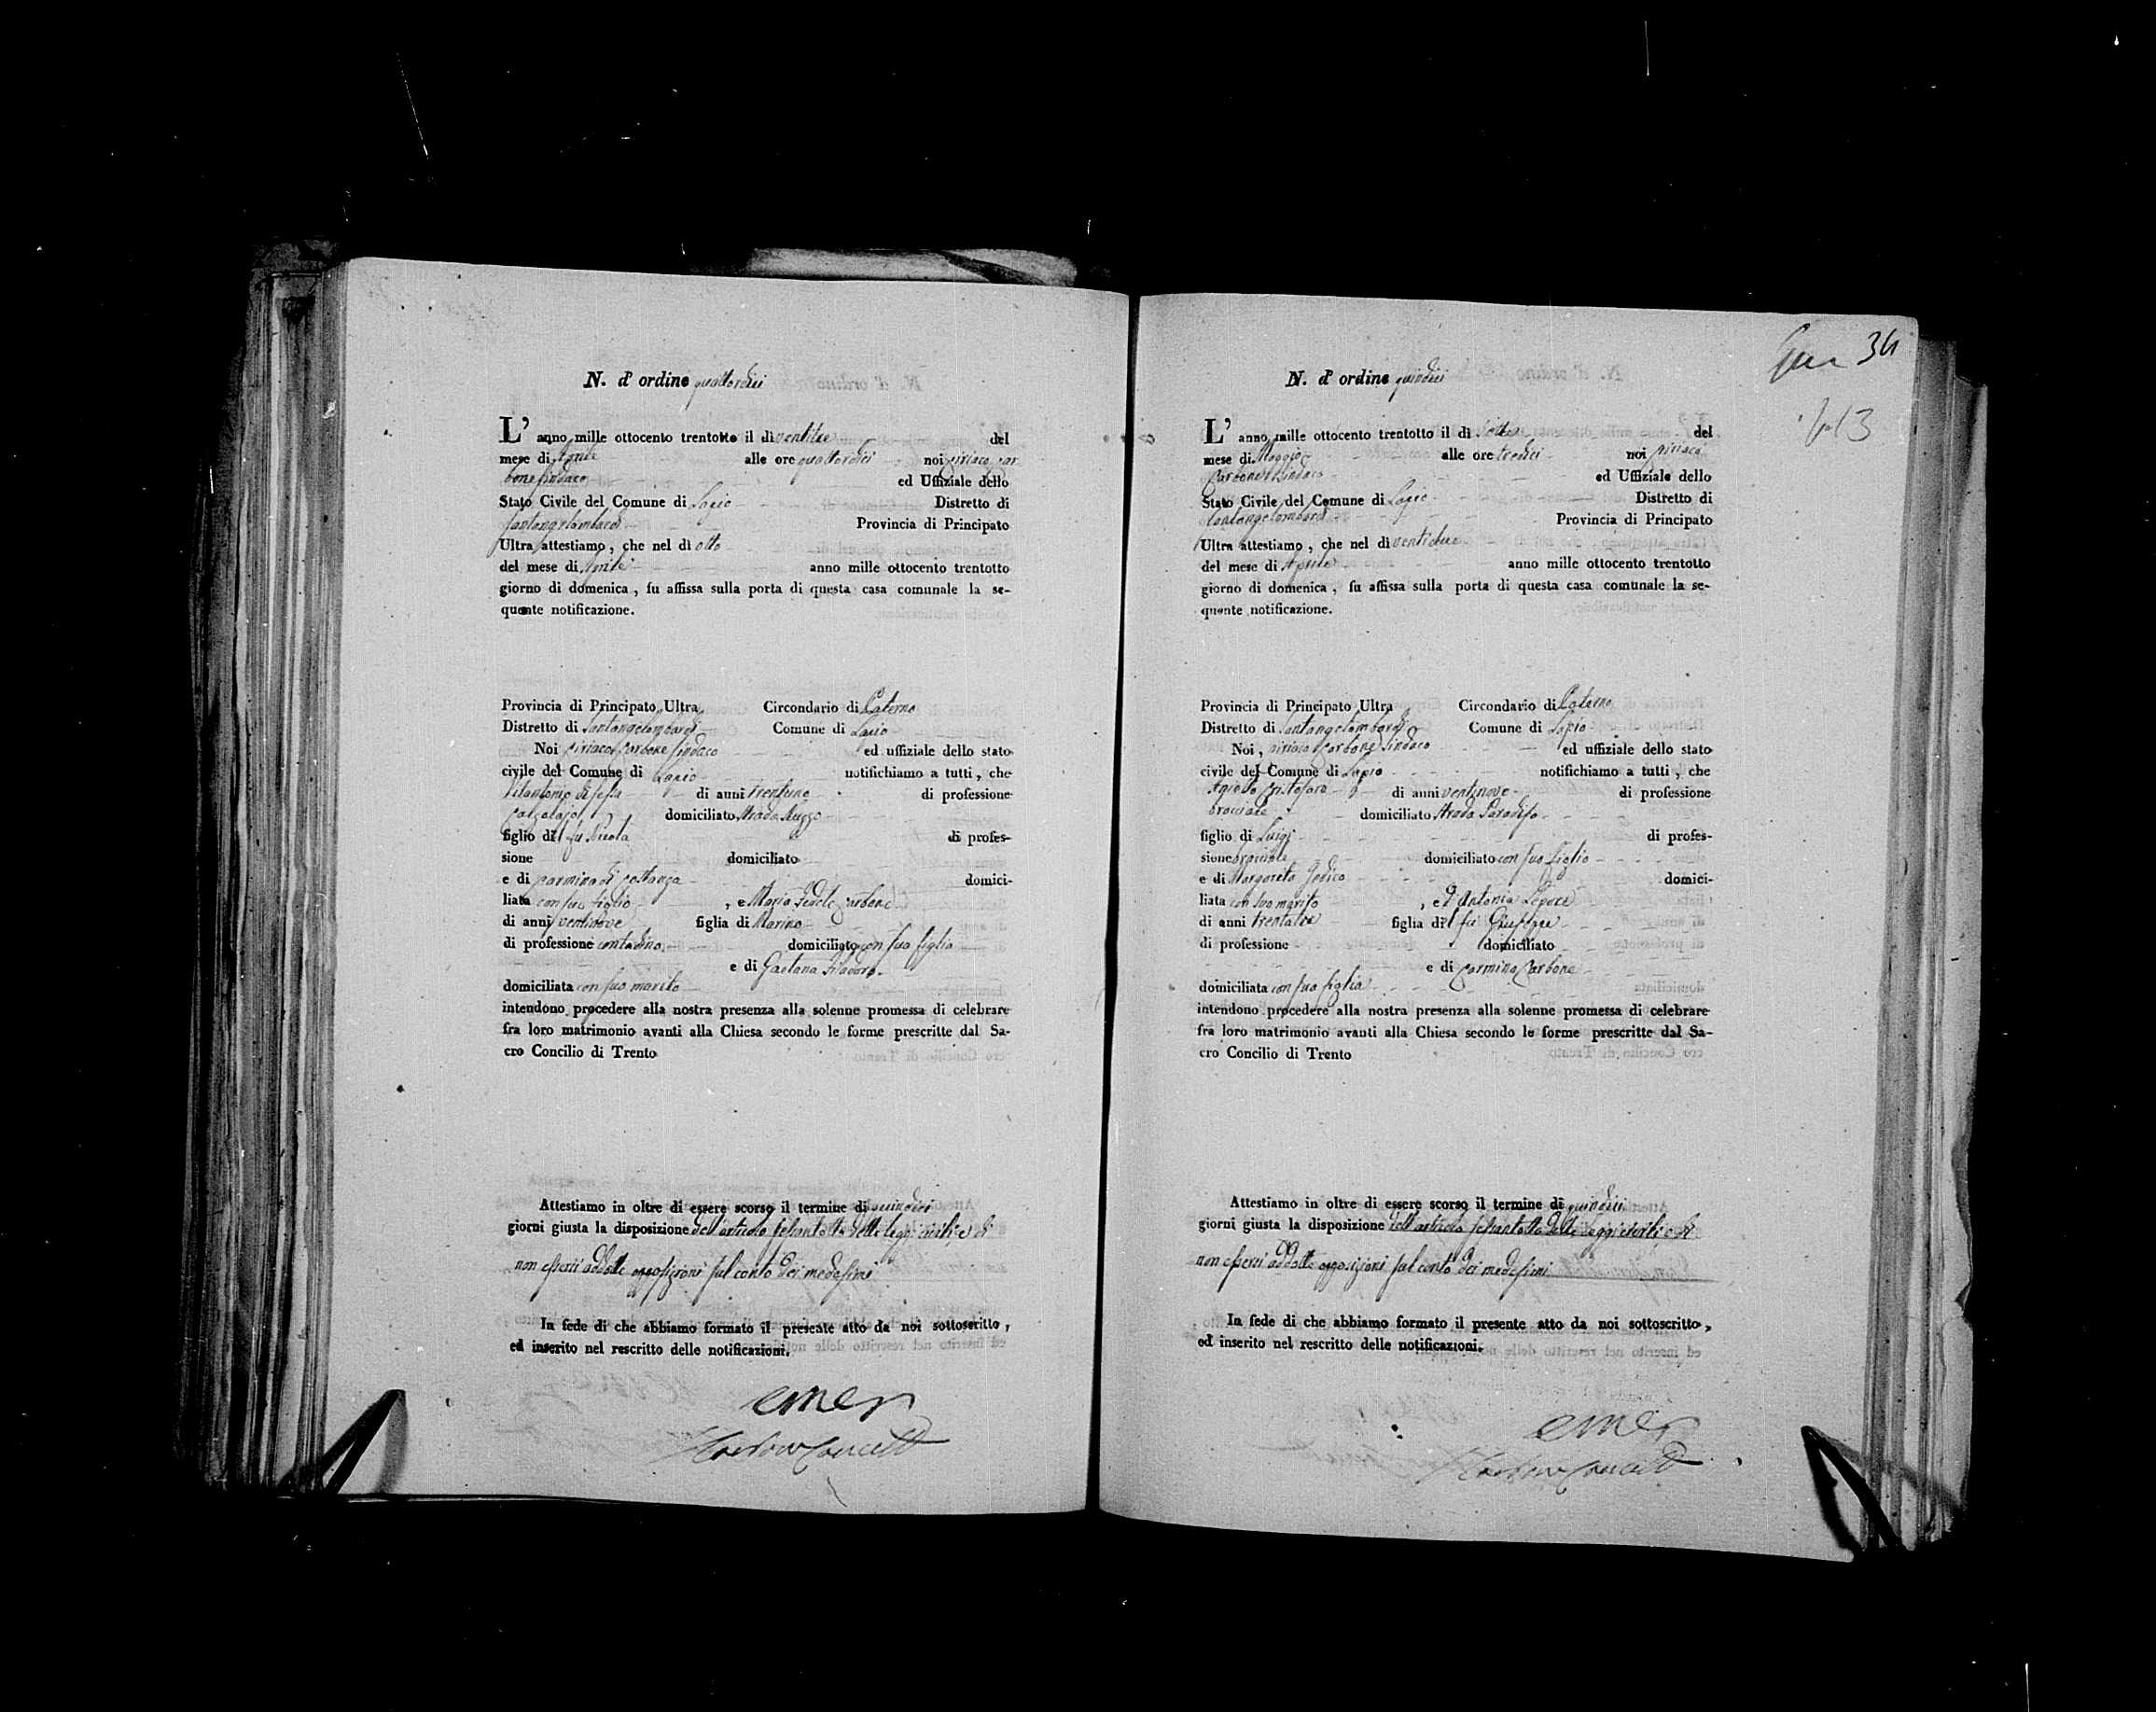 N. d' ordine quattordici
L' anno mille ottocento trentotto il dì ventitre del
mese di Aprile alle ore quattordici noi Ciriaco Car
bone Sindaco ed Uffiziale dello
Stato Civile del Comune di Lapio Distretto di
Santangelombardi Provincia di Principato
Ultra attestiamo, che nel dì otto
del mese di Aprile anno mille ottocento trentotto
giorno di domenica, fu affissa sulla porta di questa casa comunale la se-
quente notificazione.
Provincia di Principato Ultra Circondario di Paterno
Distretto di Santangelombardi Comune di Lapio
Noi Ciriaco Carbone Sindaco ed uffiziale dello stato
civile del Comune di Lapio notifichiamo a tutti, che
di anni trentuno di professione
Calzolajo domiciliato Strada
figlio di l fu Nicola di profes-
sione domiciliato
e di Carmina di Costanza domici-
liata con suo figlio, e Maria Fedele Carbone
di anni ventinove figlia di Marino
di professione contadino domiciliato con sua figlia
e di Gaetana
domiciliata con suo marito
intendono procedere alla nostra presenza alla solenne promessa di celebrare
fra loro matrimonio avanti alla Chiesa secondo le forme prescritte dal Sa-
cro Concilio di Trento
Attestiamo in oltre di essere scorso il termine di quindici
giorni giusta la disposizione dell'articolo sessantotto delle leggi civili, e di
non essersi addotte opposizioni sul conto dei medesimi
In fede di che abbiamo formato il presente atto da noi sottoscritto,
ed inserito nel rescritto delle notificazioni.
34
113
N. d' ordine quindici
L' anno mille ottocento trentotto il dì otto del
mese di Maggio alle ore tredici noi Ciriaco
Carbone Sindaco ed Uffiziale dello
Stato Civile del Comune di Lapio Distretto di
Santangelombardi Provincia di Principato
Ultra attestiamo, che nel dì ventidue
del mese di Aprile anno mille ottocento trentotto
giorno di domenica, fu affissa sulla porta di questa casa comunale la se-
quente notificazione.
Provincia di Principato Ultra Circondario di Paterno
Distretto di Santangelombardi Comune di Lapio
Noi, Ciriaco Carbone Sindaco ed uffiziale dello stato
civile del Comune di Lapio notifichiamo a tutti, che
Cristofaro di anni ventinove di professione
bracciale domiciliato Strada Paradiso
figlio di Luigi di profes-
sione bracciale domiciliato con suo figlio
e di Margarita Jodice domici-
liata con suo marito, ed Antonia Lepore
di anni trentatre figlia di l fu Giuseppe
di professione domiciliato
e di Carmina Carbone
domiciliata con sua figlia
intendono procedere alla nostra presenza alla solenne promessa di celebrare
fra loro matrimonio avanti alla Chiesa secondo le forme prescritte dal Sa-
cro Concilio di Trento
Attestiamo in oltre di essere scorso il termine di quindici
giorni giusta la disposizione dell'articolo sessantotto delle leggi civili, e di
non essersi addotte opposizioni sul conto dei medesimi
In fede di che abbiamo formato il presente atto da noi sottoscritto,
ed inserito nel rescritto delle notificazioni.